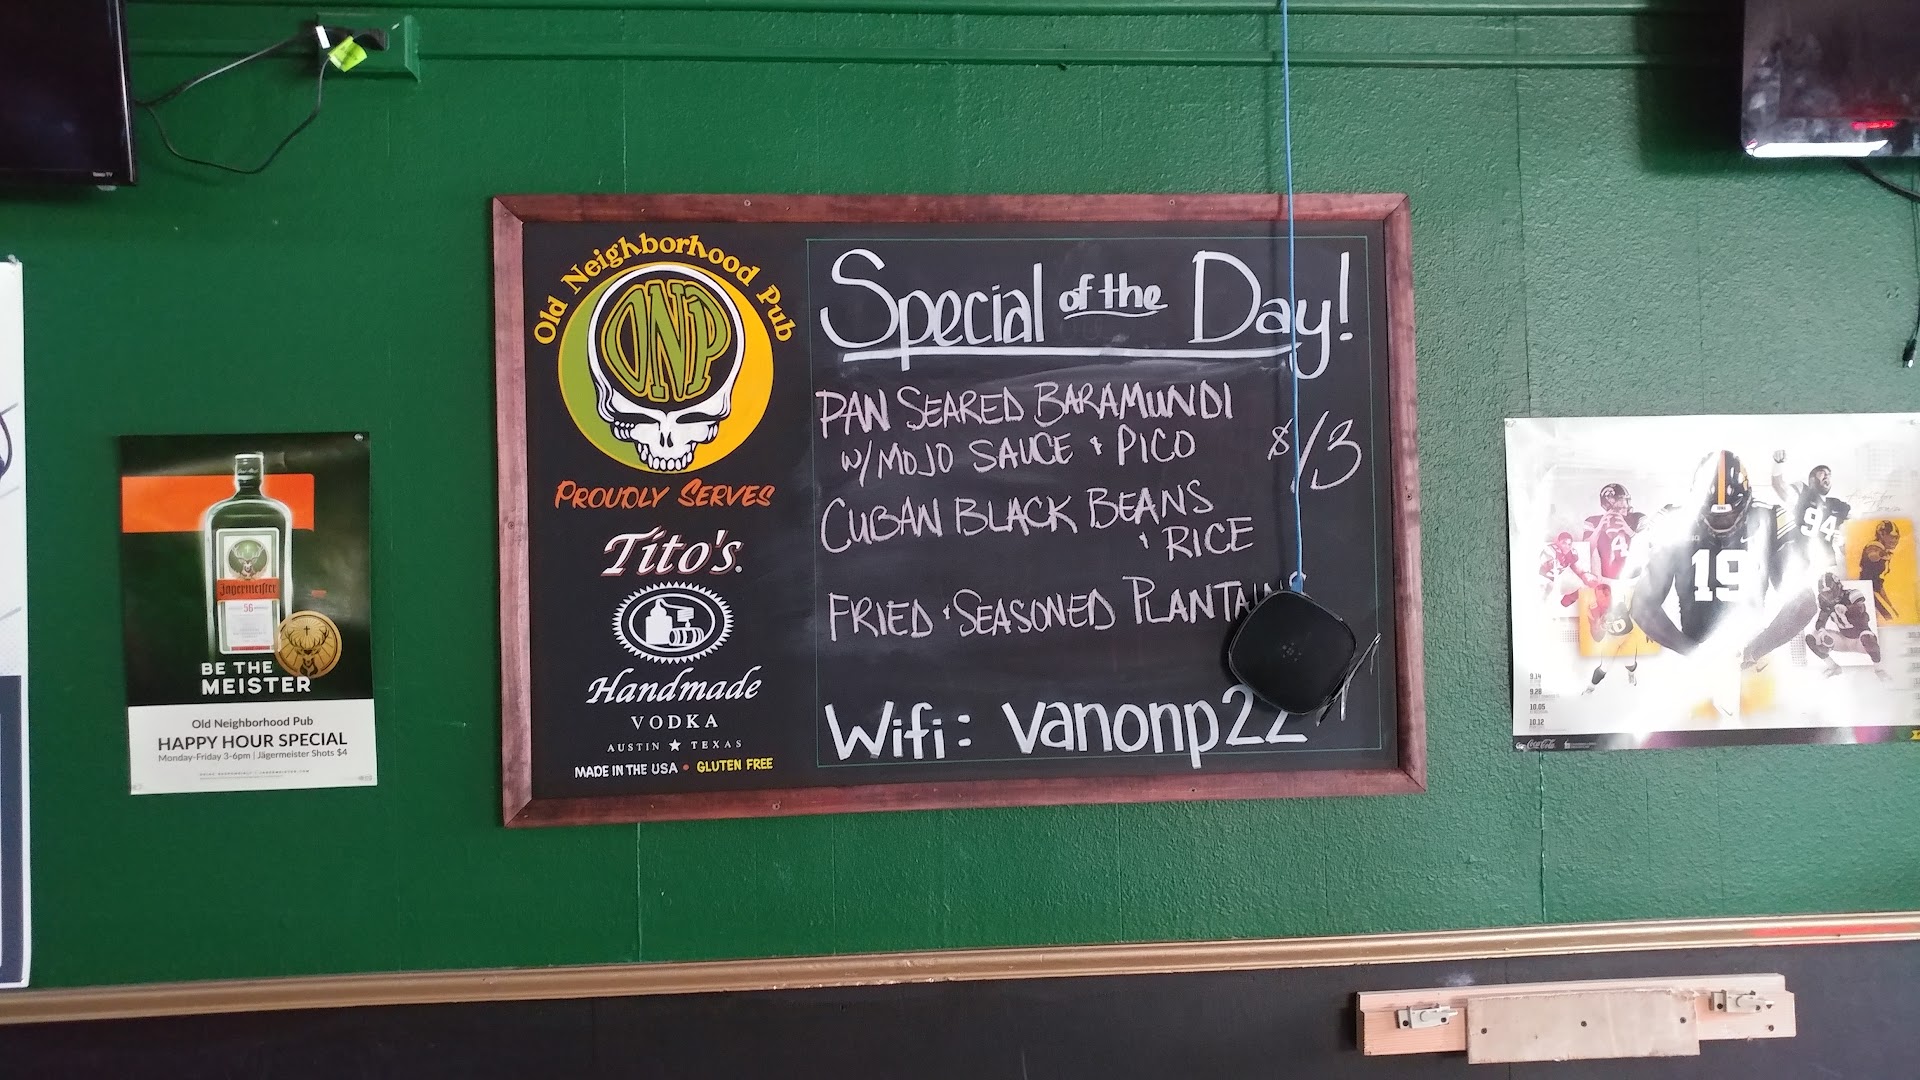 Old Neighborhood Pub
ONP
PROUDLY SERVES
Tito's.
Handmade
VODKA
AUSTIN ★ TEXAS
MADE IN THE USA • GLUTEN FREE
Special of the Day!
PAN SEARED BARAMUNDI
W/ MOJO SAUCE & PICO
$13
CUBAN BLACK BEANS
& RICE
FRIED & SEASONED PLANTAINS
Wifi: vanonp22
Jägermeister
56
BE THE
MEISTER
Old Neighborhood Pub
HAPPY HOUR SPECIAL
Monday-Friday 3-6pm | Jägermeister Shots $4
19
94
4
9.14
9.28
10.05
10.12
Coca-Cola
Roku TV